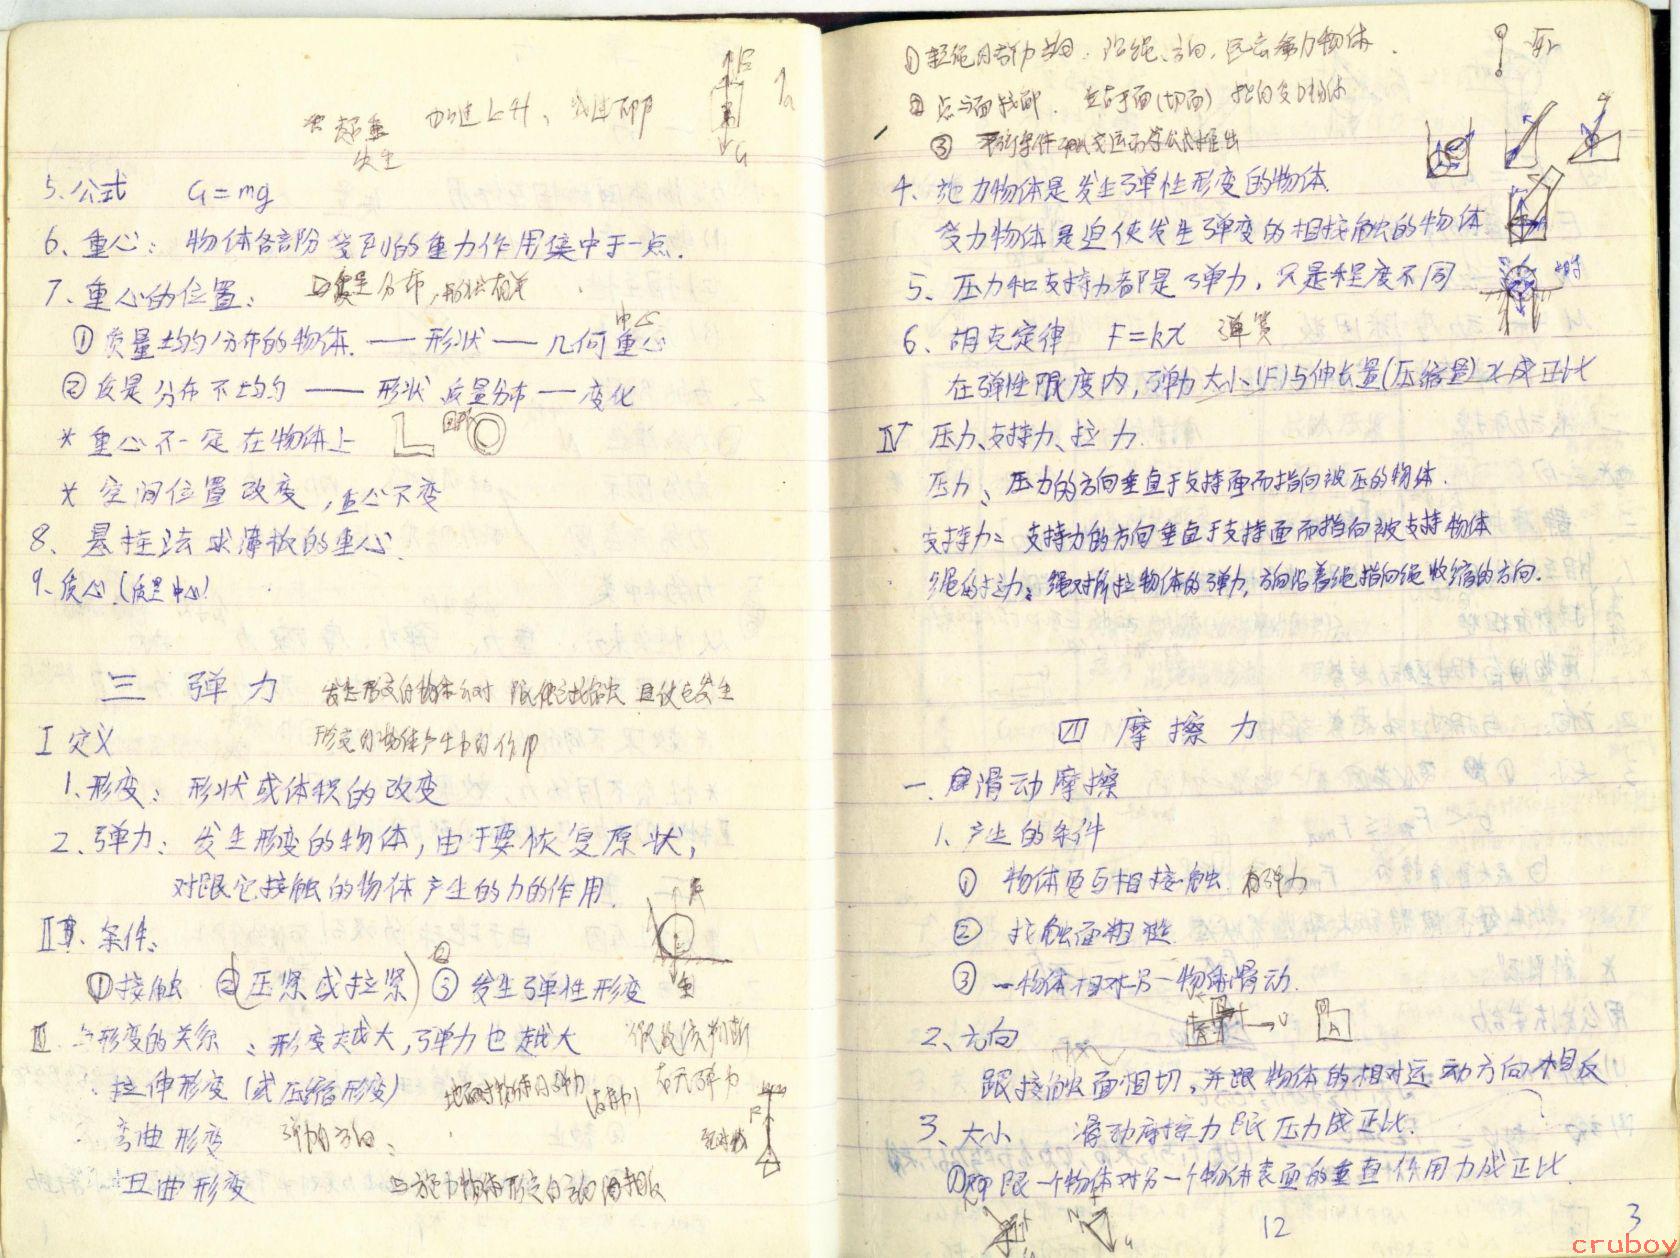 * 超重 加速上升、减速下降
失重
5.公式 G=mg
6、重心：物体各部分受到的重力作用集中于一点.
7、重心的位置： 与质量分布，形状有关
①质量均匀分布的物体.——形状——几何重心
中心
②质量分布不均匀——形状 质量分布—变化
*重心不一定在物体上
* 空间位置改变，重心不变
8、悬挂法求薄板的重心.
9.质心(质量中心)
三 弹力
Ⅰ定义
1.形变：形状或体积的改变
2.弹力：发生形变的物体，由于要恢复原状，
对跟它接触的物体产生的力的作用.
Ⅱ 条件：
①接触 ②(压紧或拉紧) ③发生弹性形变
Ⅲ.与形变的关系：形变越大，弹力也越大
拉伸形变(或压缩形变) 地面对物体的弹力(支持力)
弯曲形变 弹力方向：
扭曲形变 与施力物体形变的方向相反
有无弹力
①轻绳
②点与面接触 垂直于面(切面) 指向受力物体
③
4、施力物体是发生弹性形变的物体.
受力物体是迫使发生弹变的相接触的物体
5、压力和支持力都是弹力，只是程度不同
6、胡克定律 F=kx 弹簧
在弹性限度内，弹力大小(F)与伸长量(压缩量)x成正比
Ⅳ 压力、支持力、拉力.
压力：压力的方向垂直于支持面而指向被压的物体.
支持力：支持力的方向垂直于支持面而指向被支持物体
绳的拉力：绳对所拉物体的弹力，方向沿着绳指向绳收缩的方向.
四 摩擦力
一.滑动摩擦
1.产生的条件
① 物体互相接触. 有弹力
② 接触面粗糙
③ 一物体相对另一物体滑动.
2、方向
跟接触面相切，并跟物体的相对运动方向相反
3、大小 滑动摩擦力跟压力成正比.
①即跟一个物体对另一个物体表面的垂直作用力成正比.
12
3
cruboy